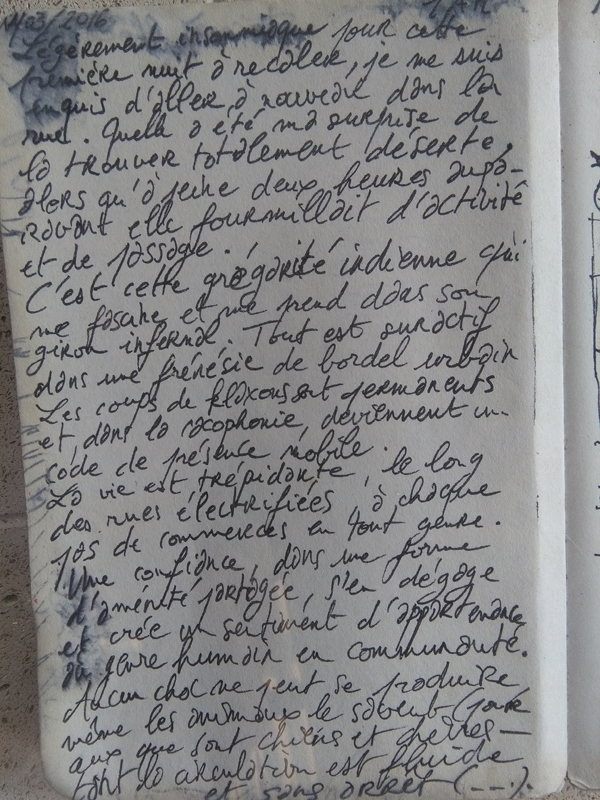 /03/2016
Légèrement insomniaque pour cette
première nuit à recaler, je me suis
enquis d'aller à nouveau dans la
rue. Quelle a été ma surprise de
la trouver totalement déserte,
alors qu'à peine deux heures aupa-
ravant elle fourmillait d'activité
et de passage.
C'est cette grégarité indienne qui
me fascine et me prend dans son
giron infernal. Tout est suractif
dans une frénésie de bordel urbain
Les coups de klaxons sont permanents
et, dans la cacophonie, deviennent un
code de présence mobile.
La vie est trépidante, le long
des rues électrifiées à chaque
pas de commerces en tout genre.
Une confiance, dans une forme
d'aménité partagée, s'en dégage
et crée un sentiment d'appartenance
au genre humain en communauté.
Aucun choc ne peut se produire
même les animaux le savent (pour
ceux que sont chiens et chèvres –
tant la circulation est fluide
et sans arrêt (---).